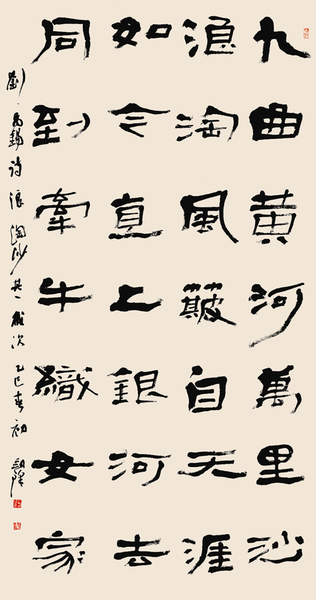 九曲黄河萬里沙
浪淘風簸自天涯
如今直上銀河去
同到牽牛織女家
劉禹錫詩浪淘沙其一歲次乙巳春初